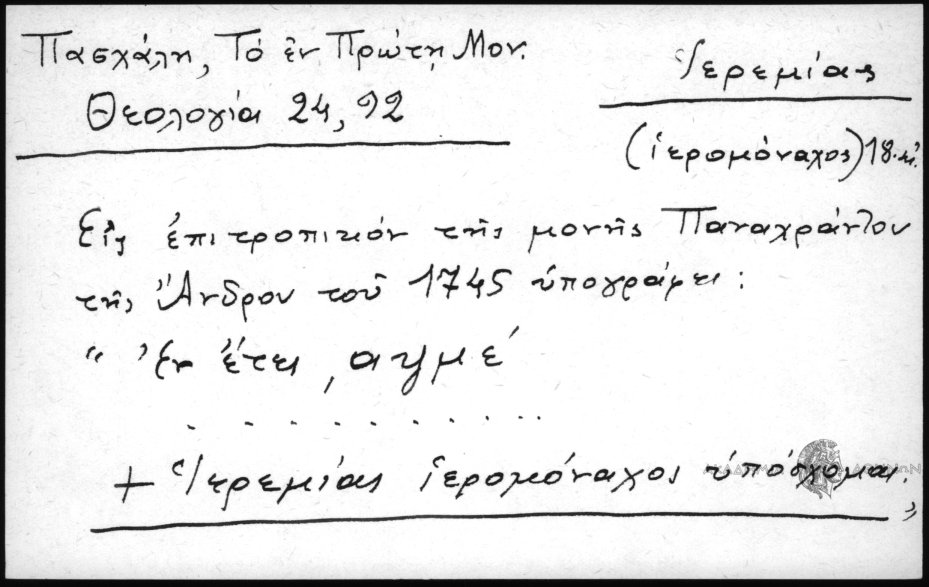 Πασχάλη, Τό ἐν Πρώτῃ Μον.
Θεολογία 24, 92
Ἱερεμίας
(ἱερομόναχος) 18. αἰ.
Εἰς ἐπιτροπικόν τῆς μονῆς Παναχράντου
τῆς Ἄνδρου τοῦ 1745 ὑπογράφει:
“ Ἐν ἔτει ͵αψμέ
. . . . . . . . . . .
+ Ἱερεμίας ἱερομόναχος ὑπόσχομαι. ”